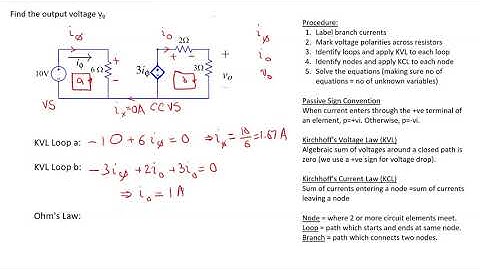 Find the output voltage v₀
i∅
i₀
2Ω
+ -
i₀
6Ω
+
-
10V
a
3i∅
b
3Ω
+
v₀
-
VS
iₓ=0A
CCVS
i∅
i₀
v₀
KVL Loop a: -10+6i∅=0 ⇒ i∅=10/6=1.67A
KVL Loop b: -3i∅+2i₀+3i₀=0
⇒ i₀=1A
Ohm's Law:
Procedure:
1. Label branch currents
2. Mark voltage polarities across resistors
3. Identify loops and apply KVL to each loop
4. Identify nodes and apply KCL to each node
5. Solve the equations (making sure no of
equations = no of unknown variables)
Passive Sign Convention
When current enters through the +ve terminal of
an element, p=+vi. Otherwise, p=-vi.
Kirchhoff's Voltage Law (KVL)
Algebraic sum of voltages around a closed path is
zero (we use a +ve sign for voltage drop).
Kirchhoff's Current Law (KCL)
Sum of currents entering a node =sum of currents
leaving a node
Node = where 2 or more circuit elements meet.
Loop = path which starts and ends at same node.
Branch = path which connects two nodes.